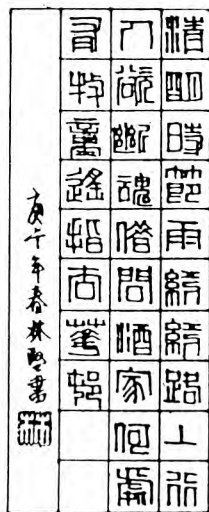 清明時節雨紛紛路上行
人欲斷魂借問酒家何處
有牧童遙指杏花邨
庚午年春林堅書